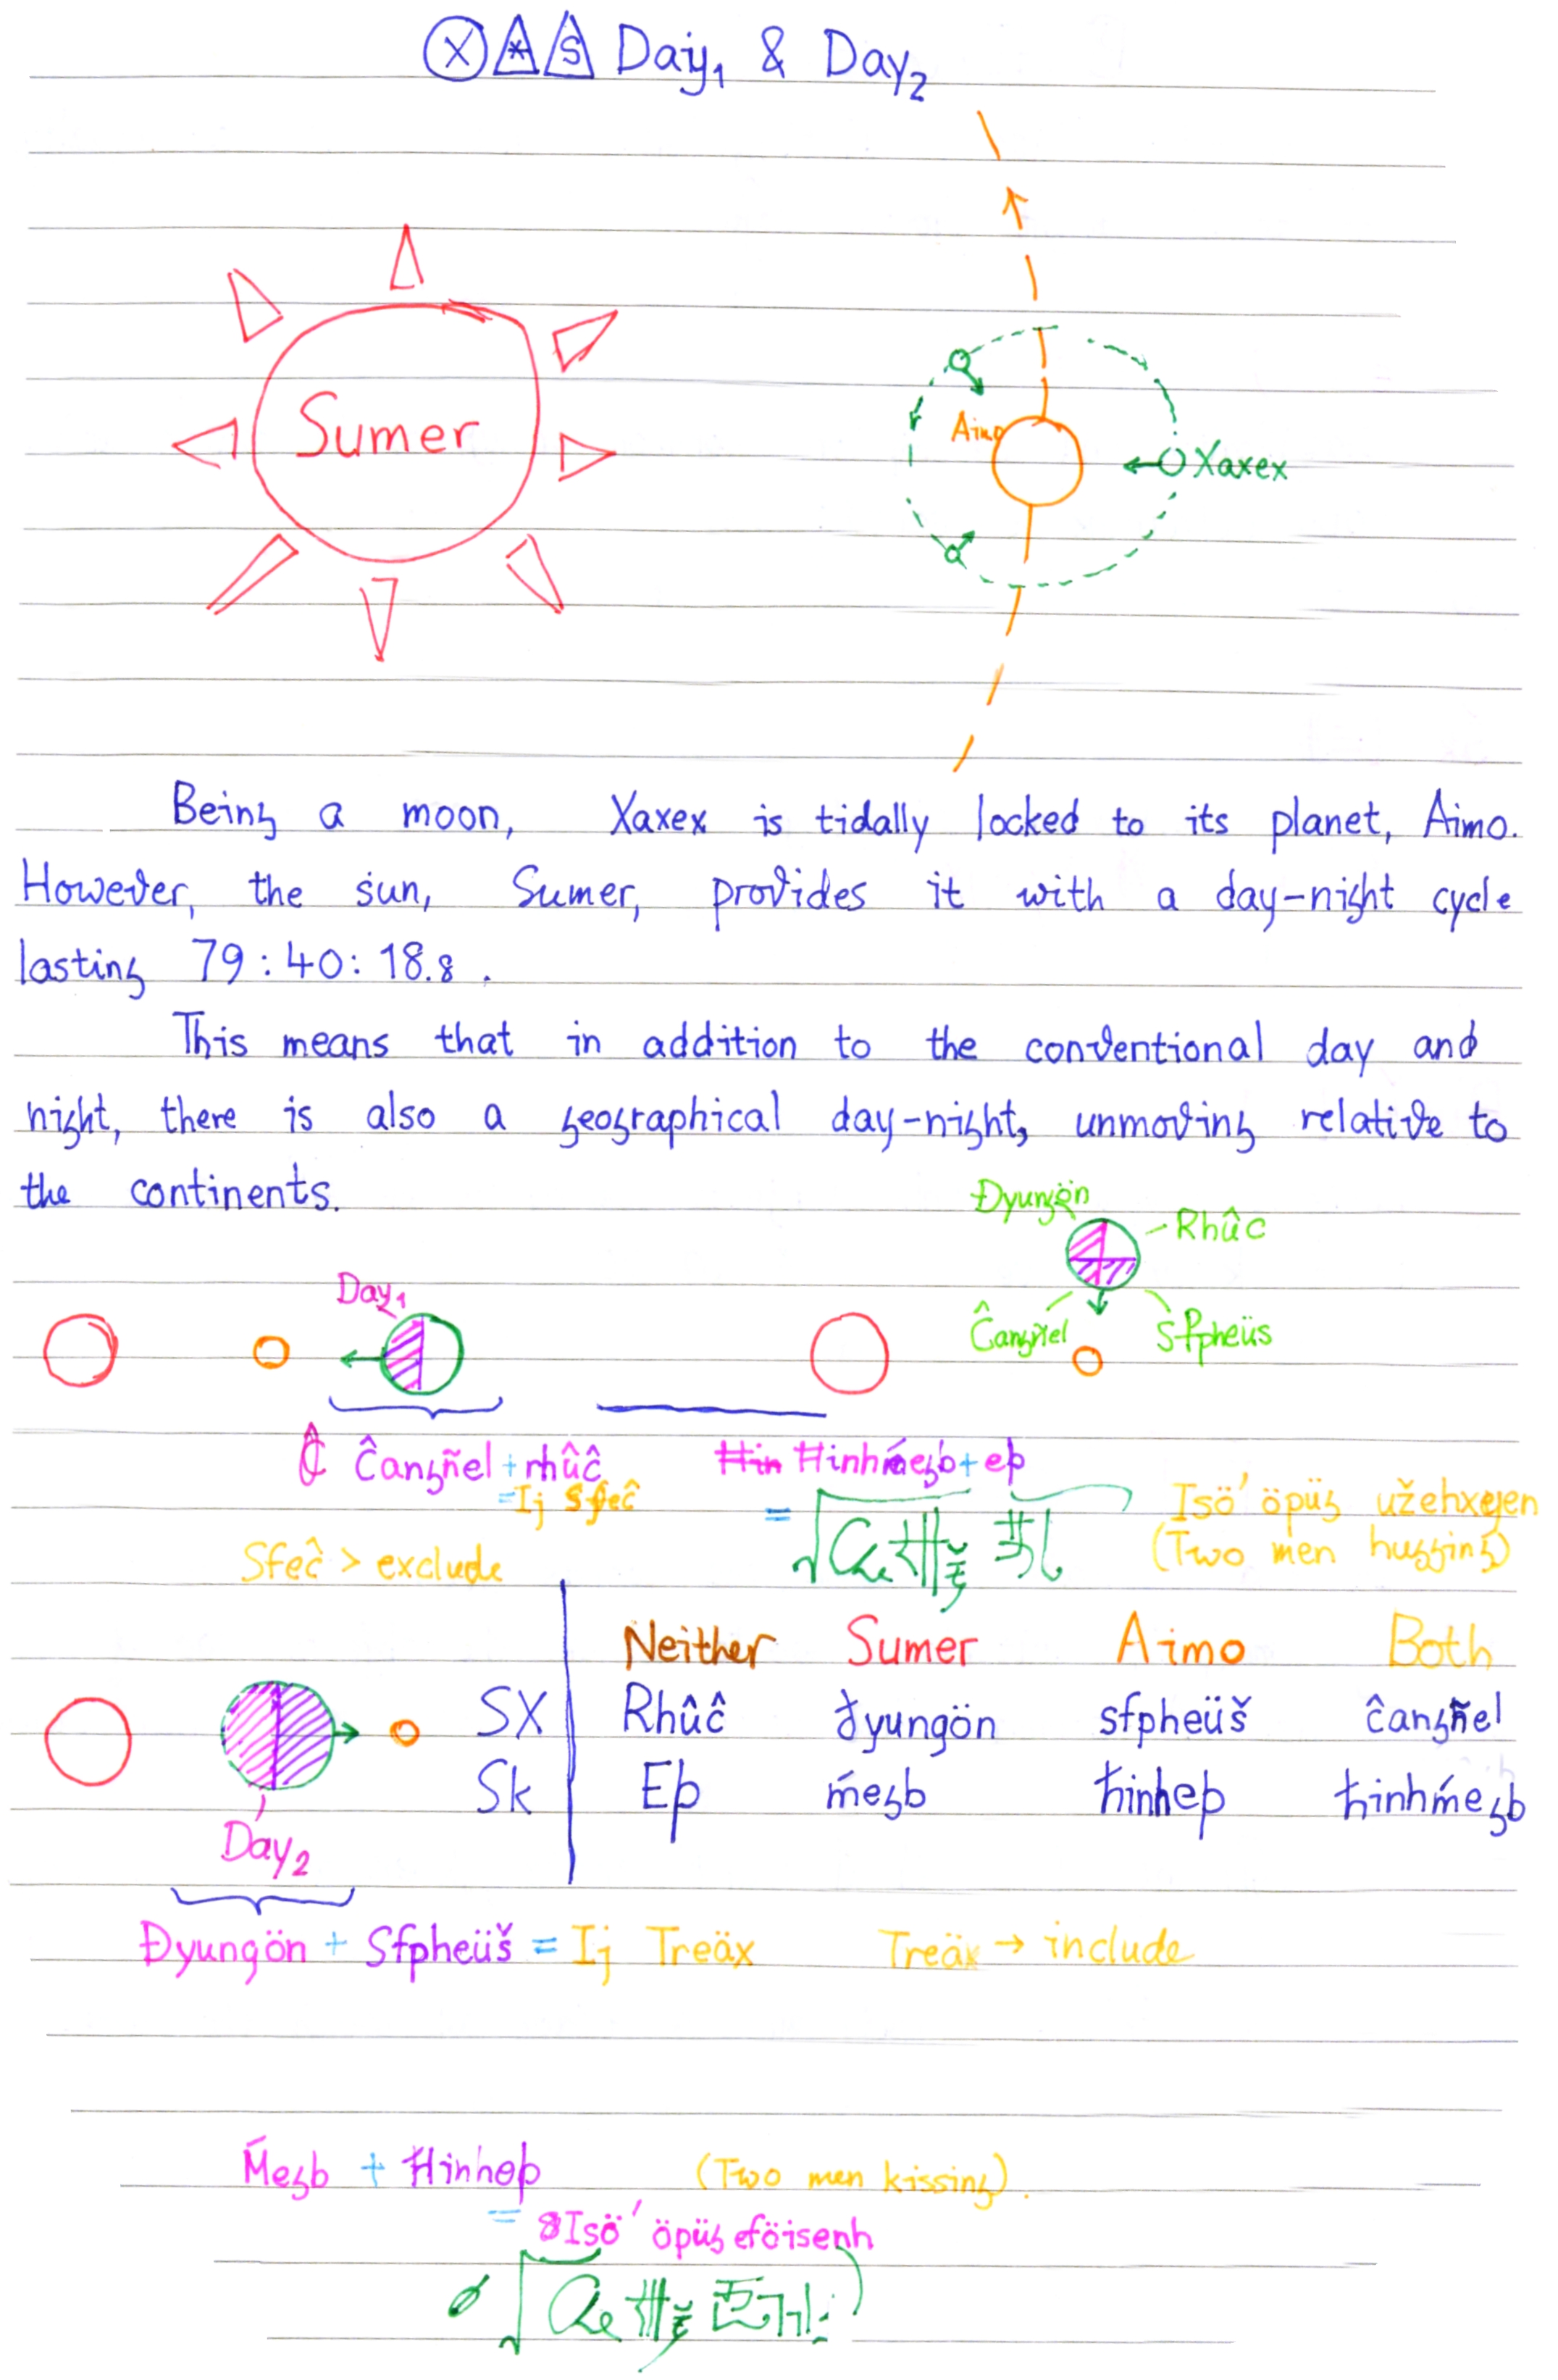 X * S Day₁ & Day₂
Sumer
Aimo
Xaxex
Being a moon, Xaxex is tidally locked to its planet, Aimo.
However, the sun, Sumer, provides it with a day-night cycle
lasting 79:40:18.8.
This means that in addition to the conventional day and
night, there is also a geographical day-night, unmoving relative to
the continents.
Đyungön
Rhûc
Day₁
Ĉangñel
Sfpheüs
Ĉangñel + rhûĉ
= Ij sfeĉ
Ħinhḿegb + eþ
=
Isö' öpüg užehxejen
(Two men hugging)
Sfeĉ > exclude
Neither Sumer Aimo Both
SX Rhûĉ đyungön sfpheüš ĉangñel
Sk Eþ ḿegb ħinheþ ħinhḿegb
Day₂
Đyungön + Sfpheüš = Ij Treäx Treäx → include
Ḿegb + Ħinheþ (Two men kissing).
= Isö' öpüg eföisenh